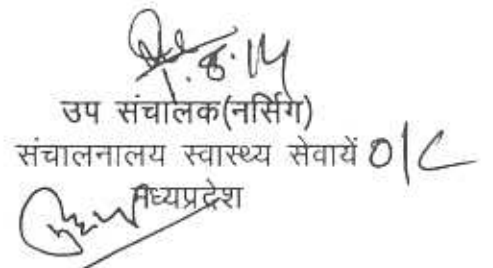 1.8.14
उप संचालक(नर्सिग)
संचालनालय स्वास्थ्य सेवायें O/C
मध्यप्रदेश